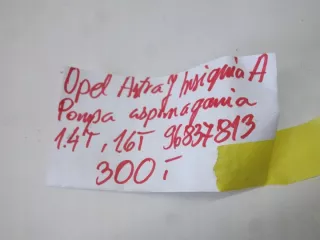 Opel Astra J Insignia A
Pompa wspomagania
1.4T, 1.6T 96837813
300,-